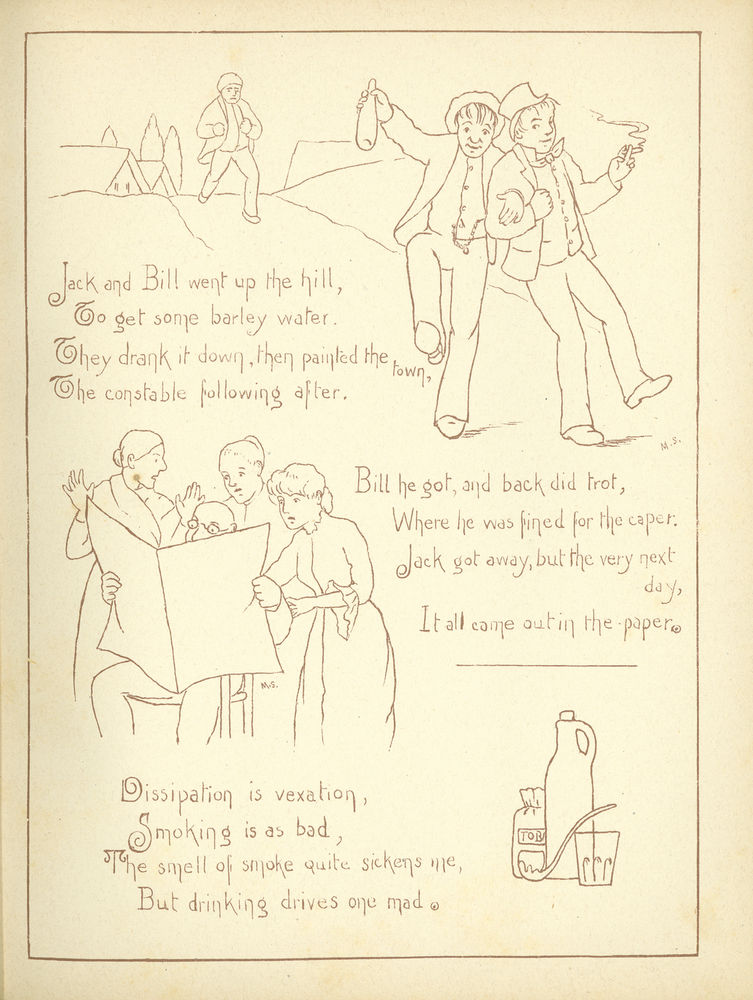 Jack and Bill went up the hill,
To get some barley water.
They drank it down, then painted the town,
The constable following after.
M.S.
Bill he got, and back did trot,
Where he was fined for the caper.
Jack got away, but the very next
day,
It all came out in the paper.
M.S.
Dissipation is vexation,
Smoking is as bad,
The smell of smoke quite sickens me,
But drinking drives one mad.
TOB